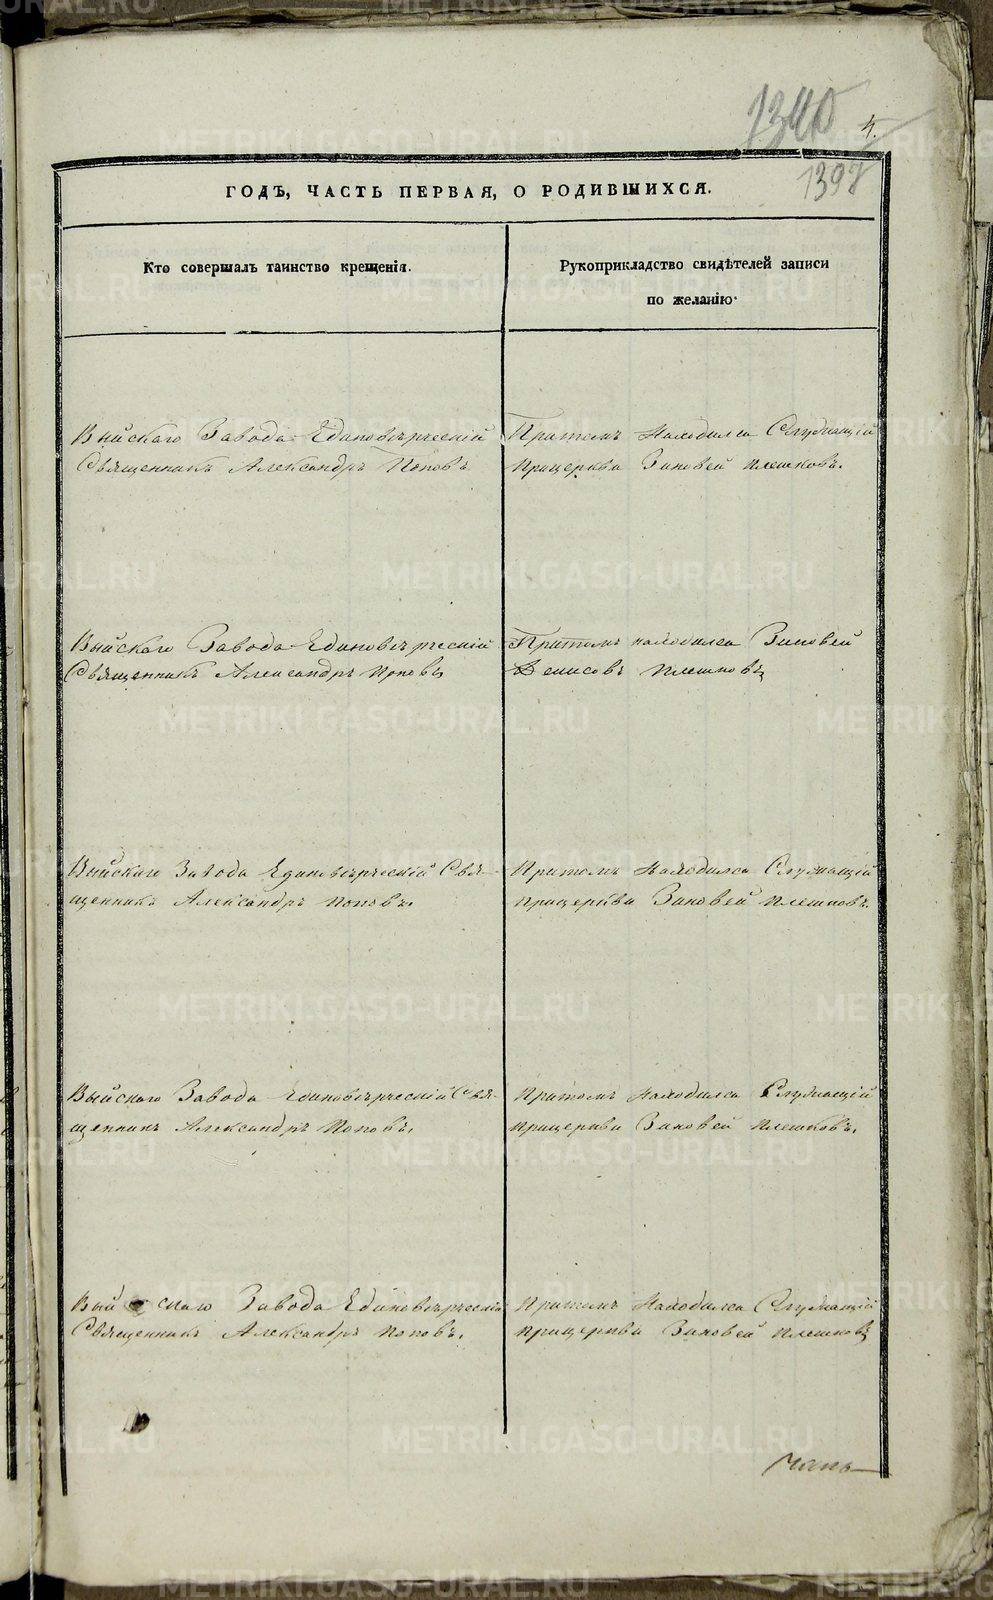 1340
4.
1398
ГОДЪ, ЧАСТЬ ПЕРВАЯ, О РОДИВШИХСЯ.
Кто совершалъ таинство крещенія.
Рукоприкладство свидѣтелей записи
по желанію.
Выйскаго Завода Единовѣрческій
Священникъ Александръ Поповъ
Притомъ Находился Служащій
прицеркви Зиновей Плешковъ.
Выйскаго Завода Единовѣрческій
Священникъ Александръ Поповъ
Притомъ находился Зиновей
Денисовъ Плешковъ
Выйскаго Завода Единовѣрческій Свя-
щенникъ Александръ Поповъ.
Притомъ Находился Служащій
прицеркви Зиновей Плешковъ.
Выйскаго Завода Единовѣрческій Свя-
щенникъ Александръ Поповъ.
Притомъ Находился Служащій
прицеркви Зиновей Плешковъ.
Выйскаго Завода Единовѣрческій
Священникъ Александръ Поповъ.
Притомъ Находился Служащій
прицеркви Зиновей Плешковъ
METRIKI.GASO-URAL.RU